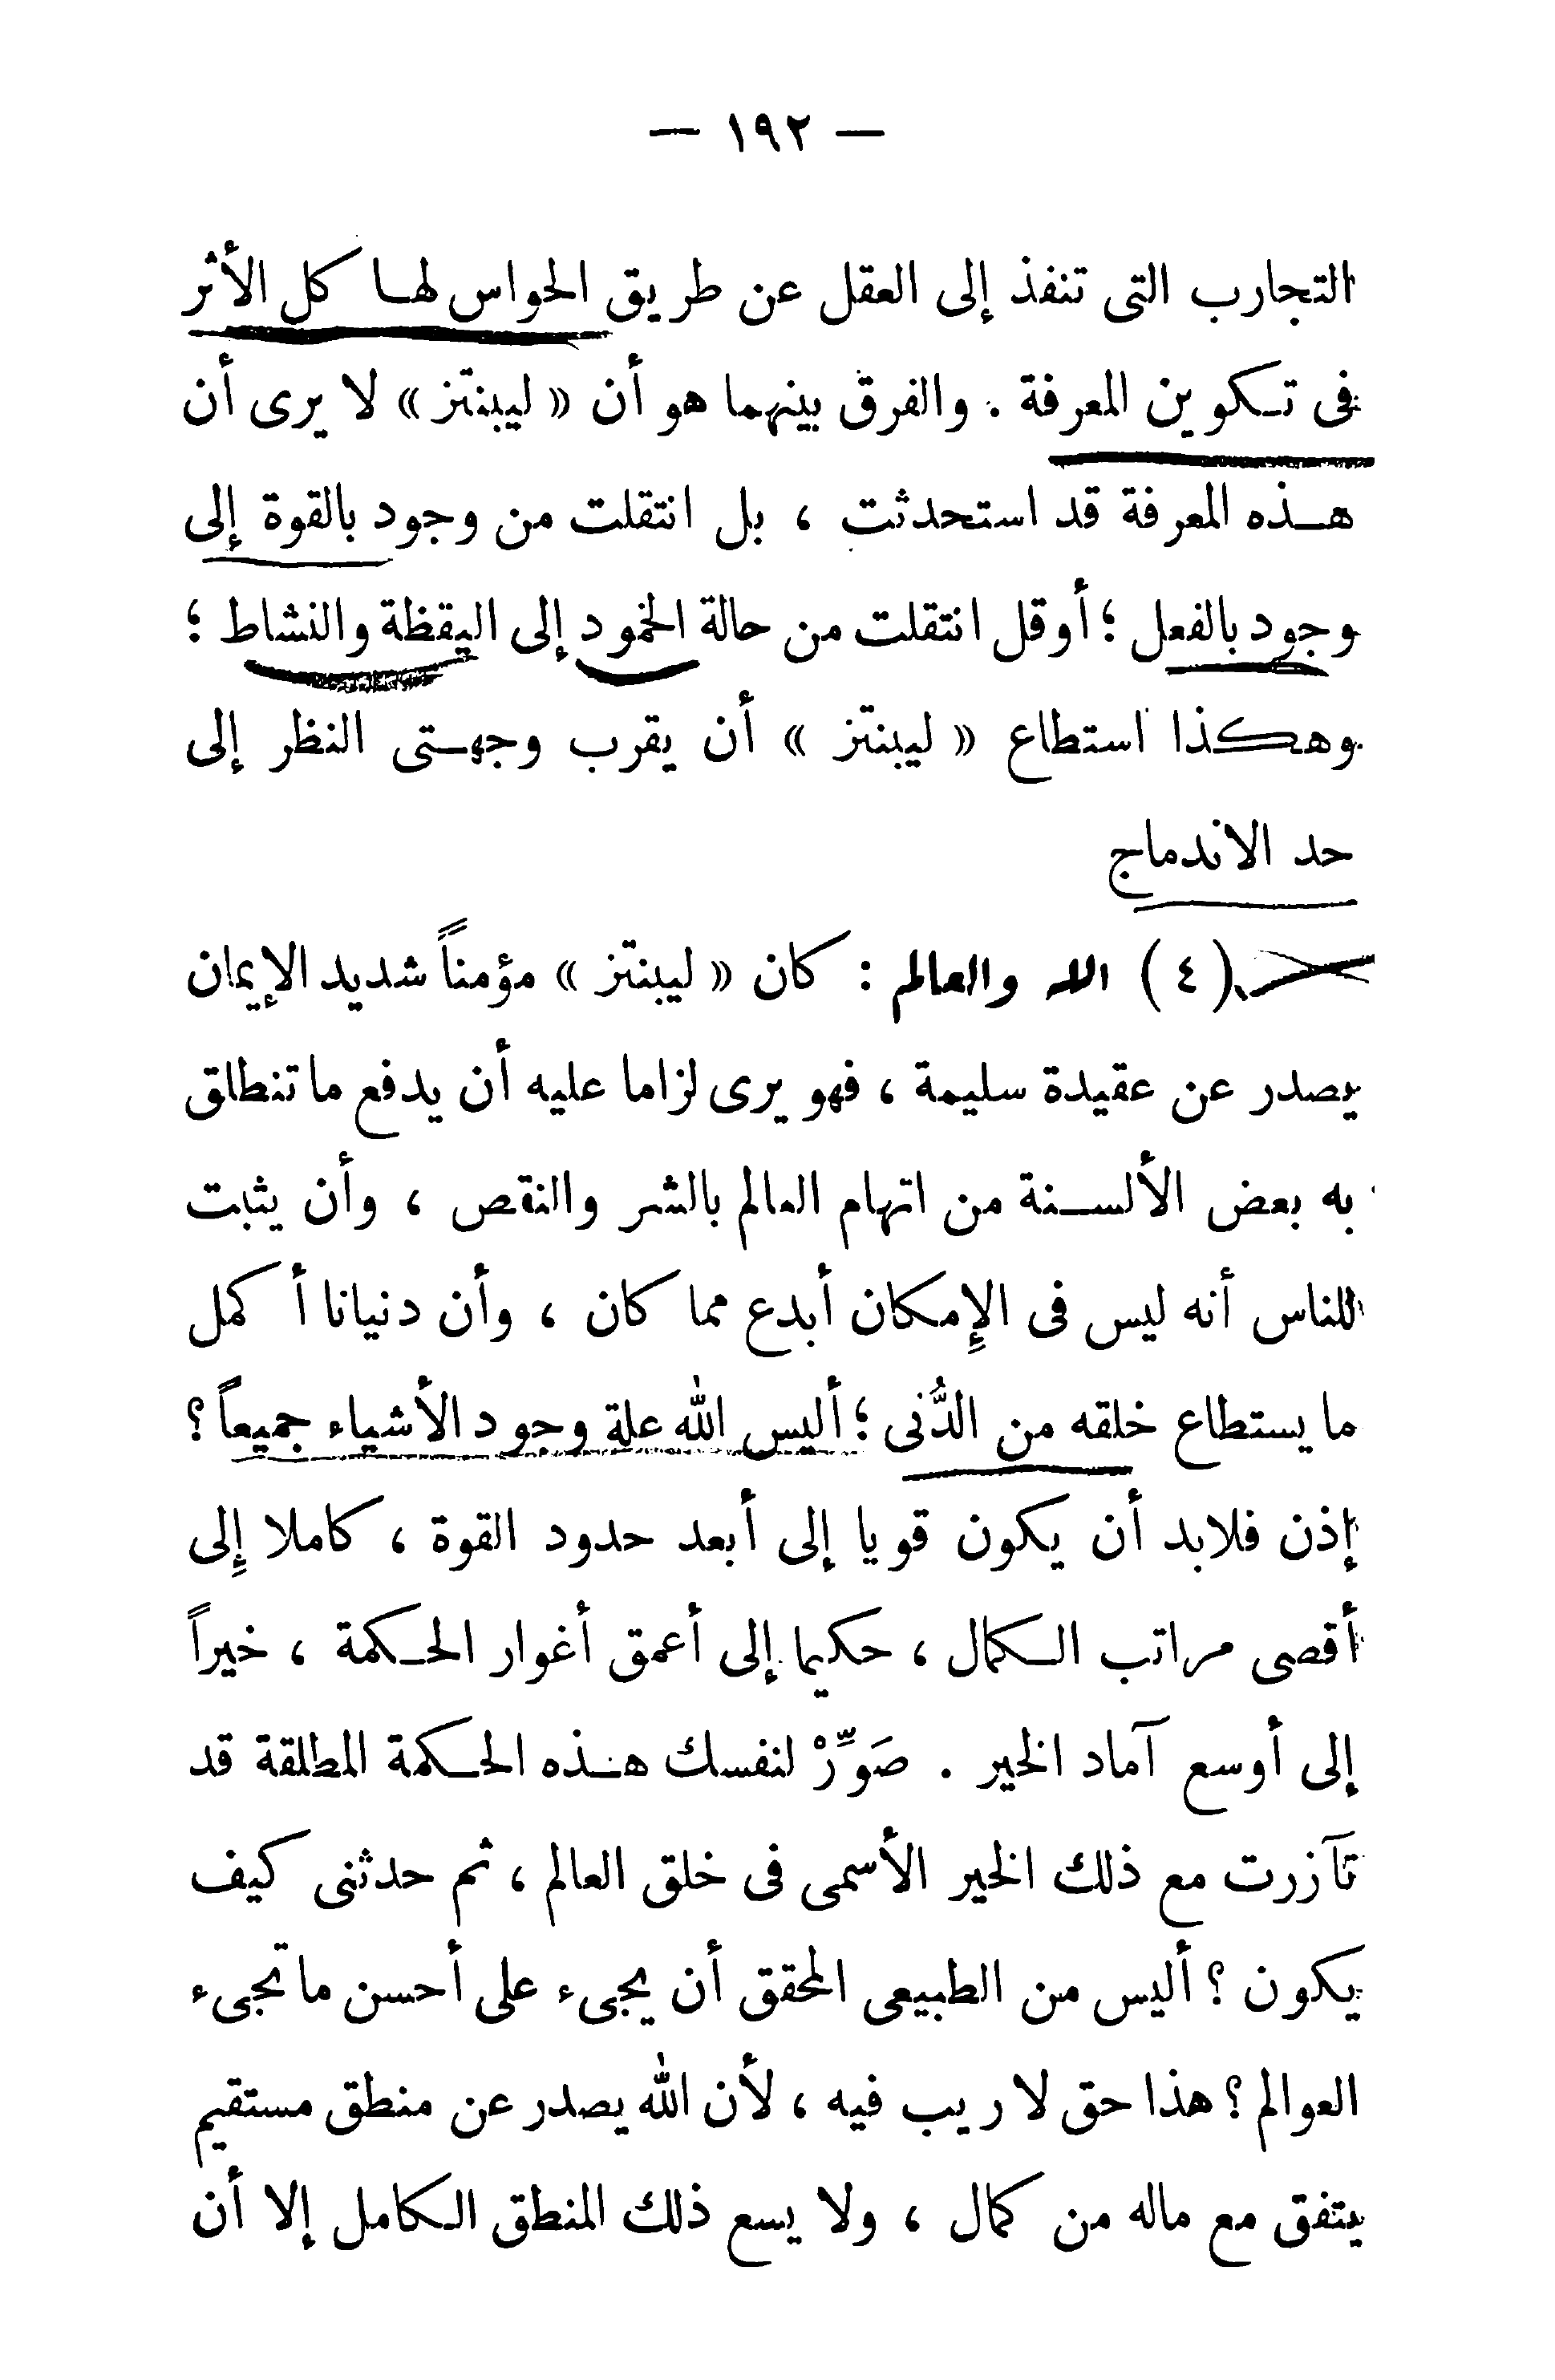 — ١٩٢ —
التجارب التى تنفذ إلى العقل عن طريق الحواس لها كل الأثر
فى تكوين المعرفة . والفرق بينهما هو أن « ليبنتز » لا يرى أن
هذه المعرفة قد استحدثت ، بل انتقلت من وجود بالقوة إلى
وجود بالفعل ؛ أو قل انتقلت من حالة الخمود إلى اليقظة والنشاط ؛
وهكذا استطاع « ليبنتز » أن يقرب وجهتى النظر إلى
حد الاندماج
(٤) الله والعالم : كان « ليبنتز » مؤمناً شديد الإيمان
يصدر عن عقيدة سليمة ، فهو يرى لزاما عليه أن يدفع ما تنطلق
به بعض الألسنة من اتهام العالم بالشر والنقص ، وأن يثبت
للناس أنه ليس فى الإمكان أبدع مما كان ، وأن دنيانا أكمل
ما يستطاع خلقه من الدُّنى ؛ أليس الله علة وجود الأشياء جميعاً ؟
إذن فلابد أن يكون قويا إلى أبعد حدود القوة ، كاملا إلى
أقصى مراتب الكمال ، حكيما إلى أعمق أغوار الحكمة ، خيراً
إلى أوسع آماد الخير . صَوِّرْ لنفسك هذه الحكمة المطلقة قد
تآزرت مع ذلك الخير الأسمى فى خلق العالم ، ثم حدثنى كيف
يكون ؟ أليس من الطبيعى المحقق أن يجىء على أحسن ما تجىء
العوالم ؟ هذا حق لا ريب فيه ، لأن الله يصدر عن منطق مستقيم
يتفق مع ماله من كمال ، ولا يسع ذلك المنطق الكامل إلا أن